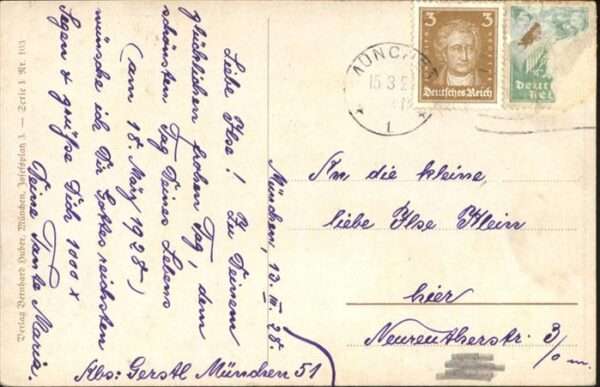 Liebe Ilse! Zu Deinem
glücklichen frohen Tag, dem
schönsten Tag Deines Lebens
(am 18. März 1928)
wünsche ich Dir Gottes reichsten
Segen & grüße Dich 1000 x
Deine Tante Maria.
München, 13. III. 28.
Abs: Gerstl München 51
An die kleine
liebe Ilse Klein
hier
Neureutherstr. 3/0 m.
MÜNCHEN
15.3.2
1
3 3
Deutsches Reich
Verlag Bernhard Huber, München, Josefsplatz 3. — Serie 1 Nr. 103